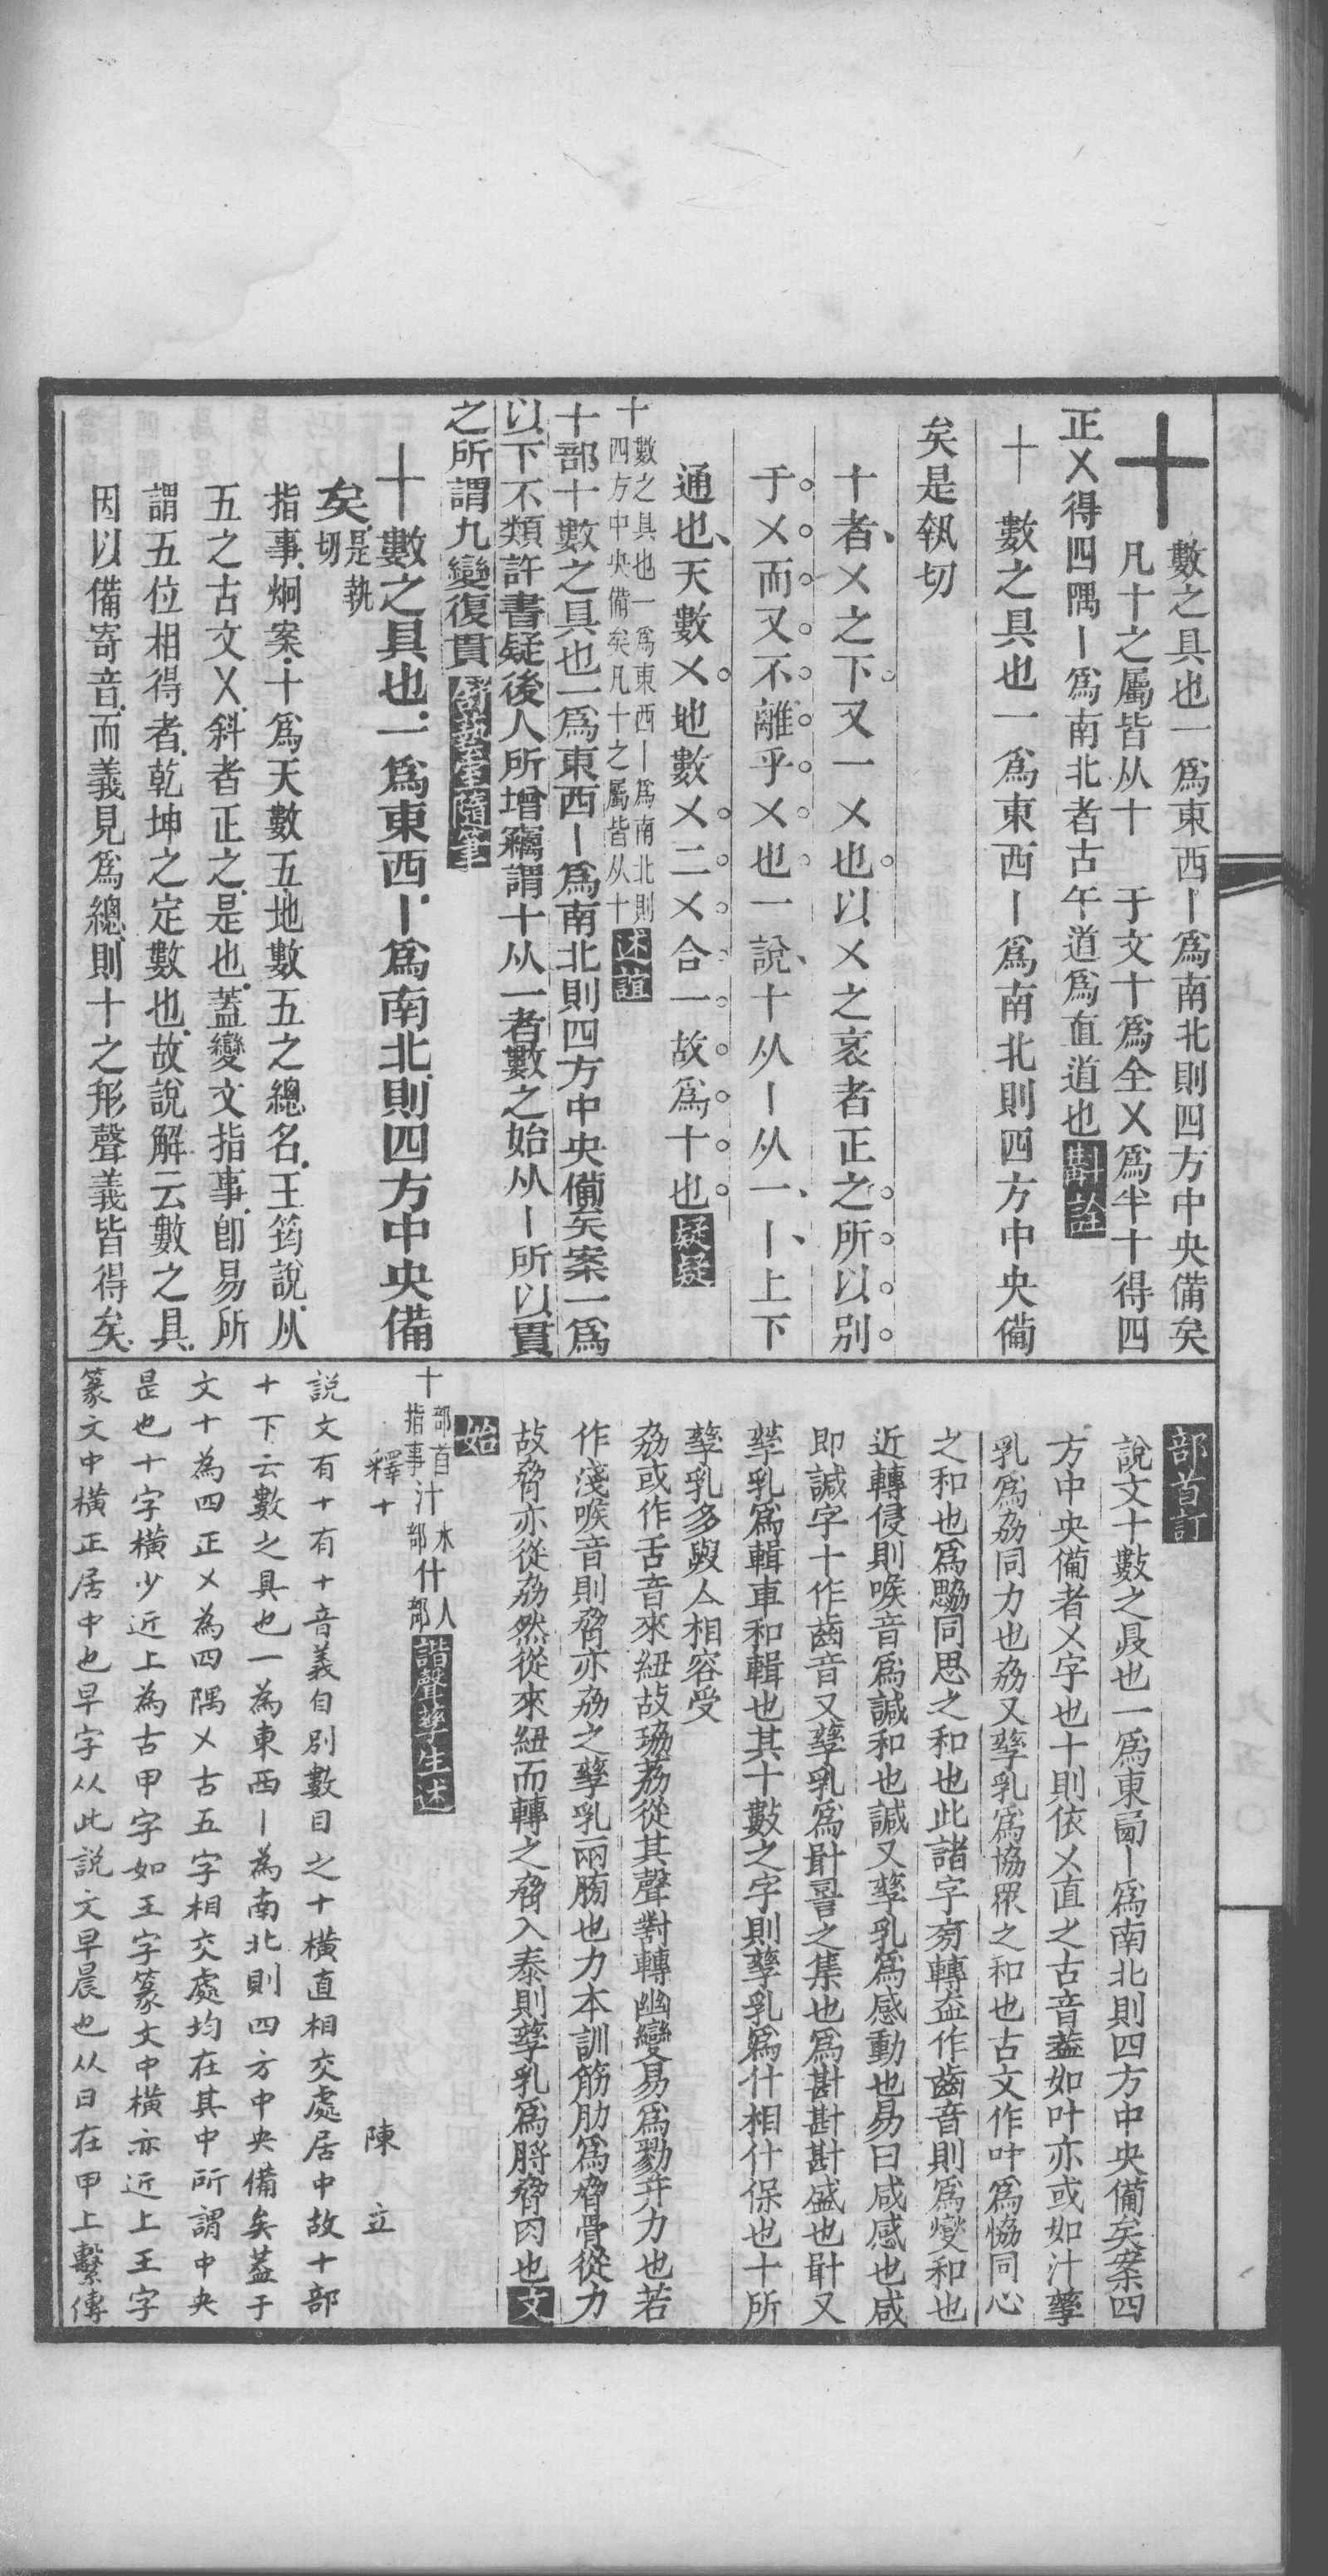 十
數之具也一爲東西丨爲南北則四方中央備矣
凡十之屬皆从十　于文十爲全㐅爲半十得四
正㐅得四隅丨爲南北者古午道爲直道也斠詮
十　數之具也一爲東西丨爲南北則四方中央備
矣是執切
十者㐅之下又一㐅也以㐅之衺者正之所以別
于㐅而又不離乎㐅也一說十从丨从一丨上下
通也天數㐅地數㐅二㐅合一故爲十也疑疑
十數之具也一爲東西丨爲南北則
四方中央備矣凡十之屬皆从十述誼
十部十數之具也一爲東西丨爲南北則四方中央備矣案一爲
以下不類許書疑後人所增竊謂十从一者數之始从丨所以貫
之所謂九變復貫舒蓺室隨筆
十數之具也一爲東西丨爲南北則四方中央備
矣是執切
指事炯案十爲天數五地數五之總名王筠說从
五之古文㐅斜者正之是也蓋變文指事卽易所
謂五位相得者乾坤之定數也故說解云數之具
因以備寄音而義見爲總則十之形聲義皆得矣
部首訂
說文十數之具也一爲東㢴丨爲南北則四方中央備矣案四
方中央備者㐅字也十則依㐅直之古音葢如叶亦或如汁孳
乳爲劦同力也劦又孳乳爲協眾之和也古文作叶爲恊同心
之和也爲勰同思之和也此諸字旁轉盍作齒音則爲燮和也
近轉侵則喉音爲諴和也諴又孳乳爲感動也易曰咸感也咸
即諴字十作齒音又孳乳爲卙詞之集也爲斟斟斟盛也卙又
孳乳爲輯車和輯也其十數之字則孳乳爲什相什保也十所
孳乳多與亼相容受
劦或作舌音來紐故珕荔從其聲對轉幽變易爲勠并力也若
作淺喉音則脅亦劦之孳乳兩膀也力本訓筋肋爲脅骨從力
故脅亦從劦然從來紐而轉之脅入泰則孳乳爲脟脅肉也文
始
十部首指事汁水部什人部諧聲孳生述
釋十　陳立
說文有十有十音義自別數目之十橫直相交處居中故十部
十下云數之具也一為東西丨為南北則四方中央備矣葢于
文十為四正㐅為四隅㐅古五字相交處均在其中所謂中央
是也十字橫少近上為古甲字如王字篆文中橫亦近上王字
篆文中橫正居中也早字从此説文早晨也从日在甲上繫傳